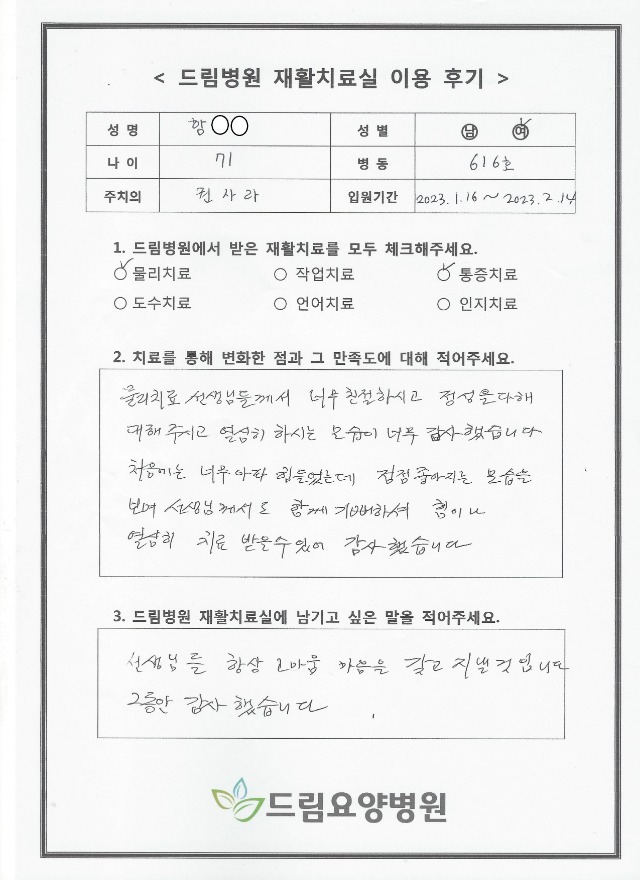 < 드림병원 재활치료실 이용 후기 >
성 명 함○○ 성 별 남 여
나 이 71 병 동 616호
주치의 권사라 입원기간 2023.1.16 ~ 2023.2.14
1. 드림병원에서 받은 재활치료를 모두 체크해주세요.
○ 물리치료 ○ 작업치료 ○ 통증치료
○ 도수치료 ○ 언어치료 ○ 인지치료
2. 치료를 통해 변화한 점과 그 만족도에 대해 적어주세요.
물리치료 선생님들께서 너무 친절하시고 정성을 다해
대해 주시고 열심히 하시는 모습이 너무 감사했습니다
처음에는 너무 아파 힘들었는데 점점 좋아지는 모습을
보며 선생님께서도 함께 기뻐하셔 힘이나
열심히 치료 받을수있어 감사했습니다
3. 드림병원 재활치료실에 남기고 싶은 말을 적어주세요.
선생님들 항상 고마움 마음을 갖고 지낼것 입니다
그동안 감사했습니다
드림요양병원